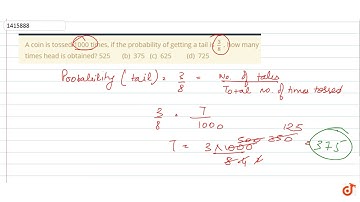 1415888
A coin is tossed 1000 times, if the probability of getting a tail is 3/8, how many
times head is obtained? 525 (b) 375 (c) 625 (d) 725
Probability (tail) = 3/8 = No. of tales / Total no. of times tossed
3/8 = T/1000
T = 3×1000/8 = 375
125
doubtnut